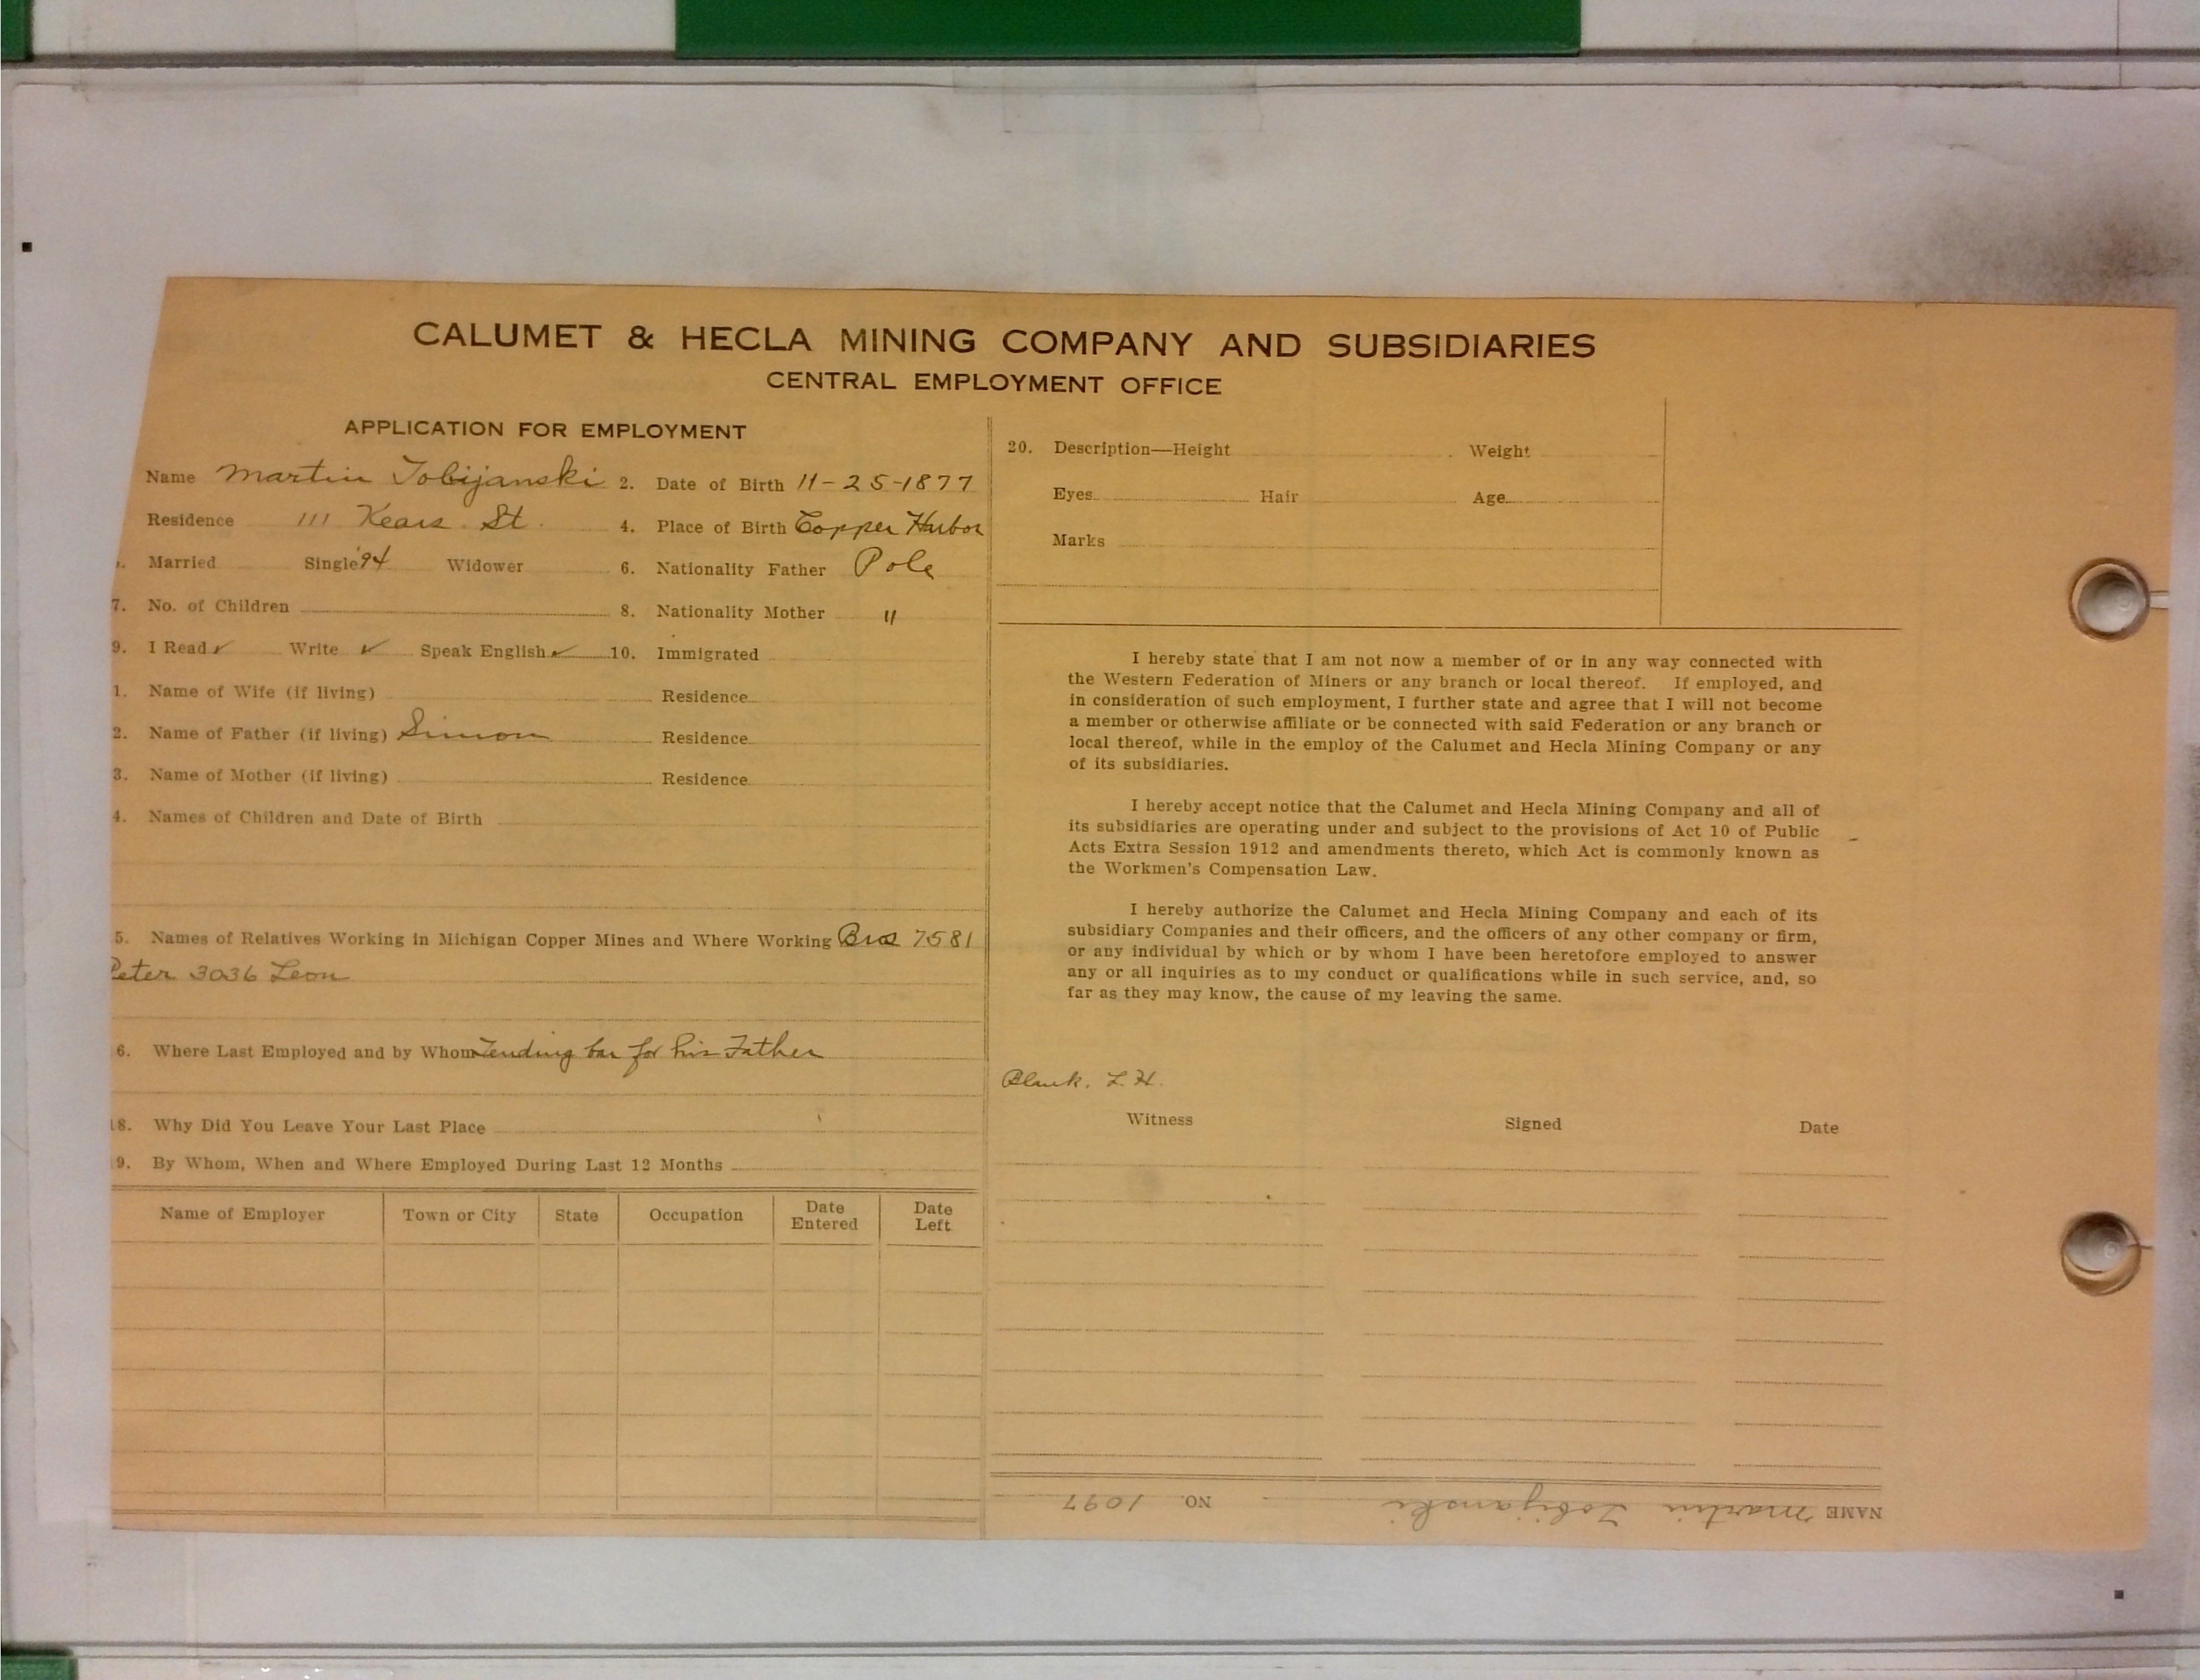 CALUMET & HECLA MINING COMPANY AND SUBSIDIARIES
CENTRAL EMPLOYMENT OFFICE
APPLICATION FOR EMPLOYMENT
Name Martin Tobijanski 2. Date of Birth 11-25-1877
Residence 111 Kears. St. 4. Place of Birth Copper Harbor
Married Single '94 Widower 6. Nationality Father Pole
7. No. of Children 8. Nationality Mother "
9. I Read ✓ Write ✓ Speak English ✓ 10. Immigrated
1. Name of Wife (if living) Residence
2. Name of Father (if living) Simon Residence
3. Name of Mother (if living) Residence
4. Names of Children and Date of Birth
5. Names of Relatives Working in Michigan Copper Mines and Where Working Bros 7581
Peter 3036 Leon
6. Where Last Employed and by Whom Tending bar for his Father
18. Why Did You Leave Your Last Place
9. By Whom, When and Where Employed During Last 12 Months
Name of Employer Town or City State Occupation Date Entered Date Left
20. Description—Height Weight
Eyes Hair Age
Marks
I hereby state that I am not now a member of or in any way connected with
the Western Federation of Miners or any branch or local thereof. If employed, and
in consideration of such employment, I further state and agree that I will not become
a member or otherwise affiliate or be connected with said Federation or any branch or
local thereof, while in the employ of the Calumet and Hecla Mining Company or any
of its subsidiaries.
I hereby accept notice that the Calumet and Hecla Mining Company and all of
its subsidiaries are operating under and subject to the provisions of Act 10 of Public
Acts Extra Session 1912 and amendments thereto, which Act is commonly known as
the Workmen's Compensation Law.
I hereby authorize the Calumet and Hecla Mining Company and each of its
subsidiary Companies and their officers, and the officers of any other company or firm,
or any individual by which or by whom I have been heretofore employed to answer
any or all inquiries as to my conduct or qualifications while in such service, and, so
far as they may know, the cause of my leaving the same.
Blank. L.H.
Witness Signed Date
NAME Martin Tobijanski NO. 1097